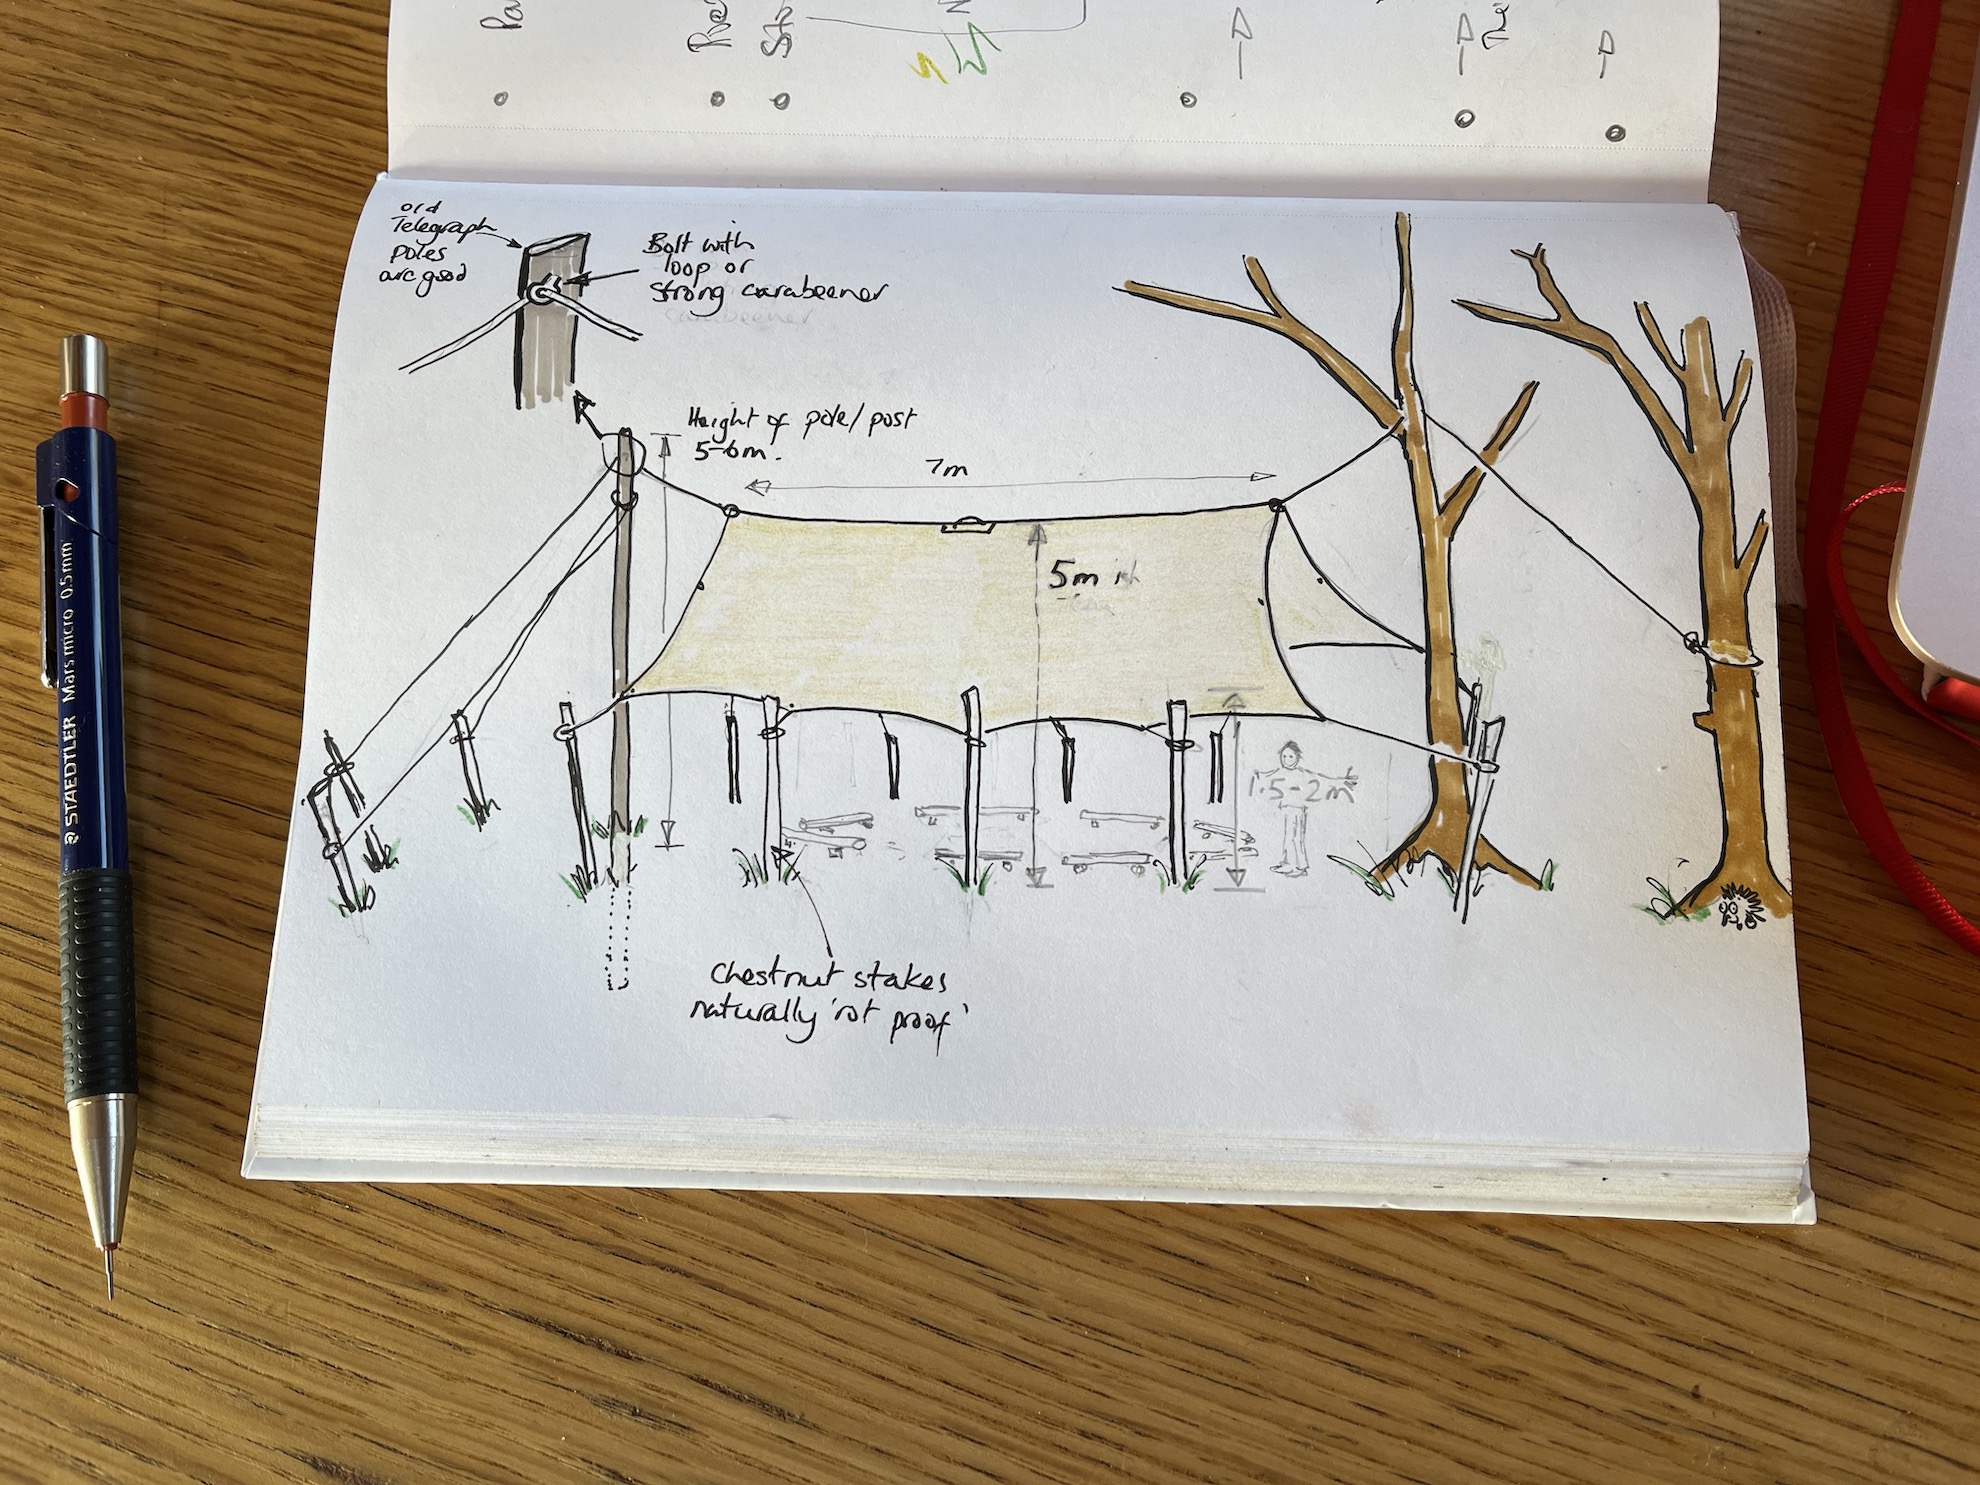 old
Telegraph
poles
are good
Bolt with
loop or
strong carabeener
carabeener
Height of pole/post
5-6m.
7m
5m ish
1.5-2m
Chestnut stakes
naturally 'rot proof'
STAEDTLER Mars micro 0.5mm